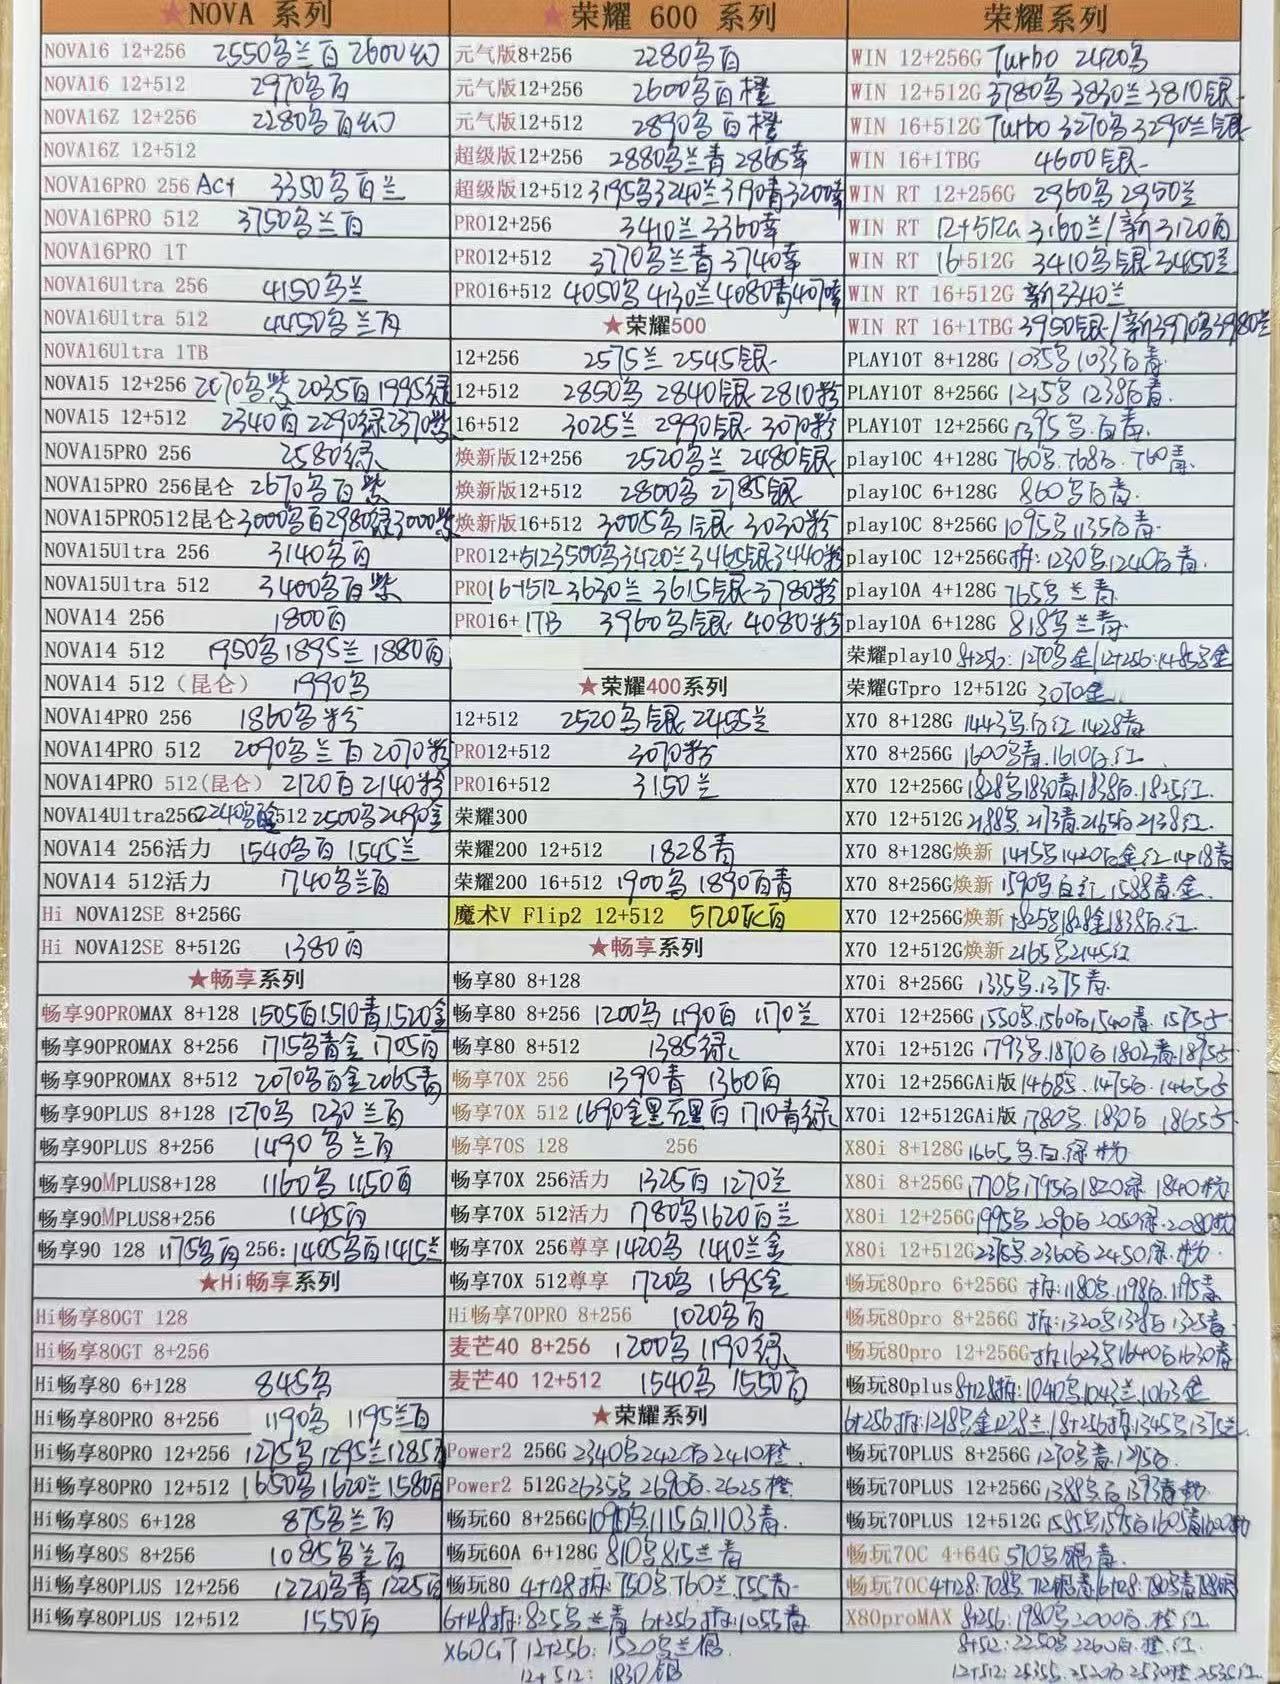 ★NOVA 系列
NOVA16 12+256 2550乌兰百 2600幻
NOVA16 12+512 2970乌百
NOVA16Z 12+256 2280乌百幻
NOVA16Z 12+512
NOVA16PRO 256 Act 3350乌百兰
NOVA16PRO 512 3750乌兰百
NOVA16PRO 1T
NOVA16Ultra 256 4150乌兰
NOVA16Ultra 512 4450乌兰百
NOVA16Ultra 1TB
NOVA15 12+256 2070乌紫 2035百 1995绿
NOVA15 12+512 2340百 2290绿 2370紫
NOVA15PRO 256 2580绿
NOVA15PRO 256昆仑 2670乌百紫
NOVA15PRO512昆仑 3000乌百2980绿3000紫
NOVA15Ultra 256 3140乌百
NOVA15Ultra 512 3400乌百紫
NOVA14 256 1800百
NOVA14 512 1950乌 1895兰 1880百
NOVA14 512（昆仑） 1990乌
NOVA14PRO 256 1860粉
NOVA14PRO 512 2090乌兰百 2070粉
NOVA14PRO 512(昆仑） 2120百 2140粉
NOVA14Ultra256 2240乌 512 2500乌2490金
NOVA14 256活力 1540乌百 1545兰
NOVA14 512活力 1740乌兰百
Hi NOVA12SE 8+256G
Hi NOVA12SE 8+512G 1380百
★畅享系列
畅享90PROMAX 8+128 1505百1510青1520金
畅享90PROMAX 8+256 1715乌青金 1705百
畅享90PROMAX 8+512 2070乌百金2065青
畅享90PLUS 8+128 1270乌 1230兰百
畅享90PLUS 8+256 1490乌兰百
畅享90MPLUS8+128 1160乌 1150百
畅享90MPLUS8+256 1435百
畅享90 128 1175乌百 256: 1405乌百1415兰
★Hi畅享系列
Hi畅享80GT 128
Hi畅享80GT 8+256
Hi畅享80 6+128 845乌
Hi畅享80PRO 8+256 1190乌 1195兰百
Hi畅享80PRO 12+256 1275乌1295兰1285百
Hi畅享80PRO 12+512 1650乌1620兰1580百
Hi畅享80S 6+128 875乌兰百
Hi畅享80S 8+256 1085乌兰百
Hi畅享80PLUS 12+256 1220乌青 1225百
Hi畅享80PLUS 12+512 1550百
★荣耀 600 系列
元气版8+256 2280乌百
元气版12+256 2600乌百橙
元气版12+512 2890乌百橙
超级版12+256 2880乌兰青 2865幸
超级版12+512 3195乌3240兰3190青3200幸
PRO12+256 3410兰 3360幸
PRO12+512 3770乌兰青 3740幸
PRO16+512 4050乌 4130兰4080青
★荣耀500
12+256 2575兰 2545银
12+512 2850乌 2840银 2810粉
16+512 3025兰 2990银 3070粉
焕新版12+256 2520乌兰 2480银
焕新版12+512 2800乌 2785银
焕新版16+512 3005乌银 3030粉
PRO12+512 3500乌3420兰3465银3440粉
PRO16+512 3630兰 3615银 3780粉
PRO16+1TB 3960乌银 4080粉
★荣耀400系列
12+512 2520乌银 2455兰
PRO12+512 3070粉
PRO16+512 3150兰
荣耀300
荣耀200 12+512 1828青
荣耀200 16+512 1900乌 1890百青
魔术V Flip2 12+512 5120灰百
★畅享系列
畅享80 8+128
畅享80 8+256 1200乌 1190百 1170兰
畅享80 8+512 1385绿
畅享70X 256 1390青 1360百
畅享70X 512 1690金黑石墨百 1710青绿
畅享70S 128 256
畅享70X 256活力 1325百 1270兰
畅享70X 512活力 1780乌1620百兰
畅享70X 256尊享 1420乌 1410兰金
畅享70X 512尊享 1720乌 1695金
Hi畅享70PRO 8+256 1020乌百
麦芒40 8+256 1200乌 1190绿
麦芒40 12+512 1540乌 1550百
★荣耀系列
Power2 256G 2340乌2420百2410橙
Power2 512G 2635乌 2690百 2625橙
畅玩60 8+256G 1090乌.1115百.1103青.
畅玩60A 6+128G 810乌 815兰青
畅玩80 4+128拆:750乌760兰755青
6+128拆:825乌兰青 6+256拆:1055青
X60GT 12+256: 1520乌兰银
12+512: 1830银
荣耀系列
WIN 12+256G Turbo 2420乌
WIN 12+512G 3780乌 3830兰 3810银
WIN 16+512G Turbo 3270乌 3290兰银
WIN 16+1TBG 4600银
WIN RT 12+256G 2960乌 2950兰
WIN RT 12+512G 3160兰/新3120百
WIN RT 16+512G 3410乌银 3450兰
WIN RT 16+512G 新3340兰
WIN RT 16+1TBG 3950银/新3970乌3980兰
PLAY10T 8+128G 1035乌1033百青
PLAY10T 8+256G 1215乌 1238百青.
PLAY10T 12+256G 1395乌.百青.
play10C 4+128G 760乌.768百.760青
play10C 6+128G 860乌百青.
play10C 8+256G 1095乌1135百青.
play10C 12+256G拆:1230乌.1240百青.
play10A 4+128G 765乌兰青
play10A 6+128G 818乌兰青.
荣耀play10 8+256:1270乌金/12+256:1485乌金
荣耀GTpro 12+512G 3070金
X70 8+128G 1443乌白红 1428青
X70 8+256G 1600乌青.1610白.红
X70 12+256G 1828乌1830青.1838白.1825红.
X70 12+512G 2188乌.2173青.2165白.2138红.
X70 8+128G焕新 1415乌1420白金红1418青
X70 8+256G焕新 1590乌白红 1588青.金
X70 12+256G焕新 1825乌1828金1838白.红.
X70 12+512G焕新 2165乌2145红
X70i 8+256G 1335乌.1375青.
X70i 12+256G 1550乌.1560白1540青.1575
X70i 12+512G 1793乌.1870白1803青.1895
X70i 12+256GAi版 1468乌.1475白.1465
X70i 12+512GAi版 1780乌.1830白 1865
X80i 8+128G 1665乌.白.绿粉
X80i 8+256G 1770乌1795白1820绿 1840粉
X80i 12+256G 1995乌2090白2050绿.2080粉
X80i 12+512G 2375乌.2360白2450绿.粉
畅玩80pro 6+256G 拆:1180乌.1198白.1195青
畅玩80pro 8+256G 拆:1320乌1338白1325青.
畅玩80pro 12+256G 拆1623乌1640白1630青
畅玩80plus 8+128拆:1040乌.1043兰.1063金
6+256拆:1218乌金1228兰.18+256拆1345乌1375兰
畅玩70PLUS 8+256G 1270乌青.1295白.
畅玩70PLUS 12+256G 1388乌白1393青粉
畅玩70PLUS 12+512G 1585乌1595白1605青1600粉
畅玩70C 4+64G 570乌银青.
畅玩70C 4+128:708乌 712银青/6+128:780乌青788银
X80proMAX 8+256:1980乌2000白.橙红
8+512:2250乌2260白.橙.红.
12+512: 2535乌.2520白2530橙.2535红.